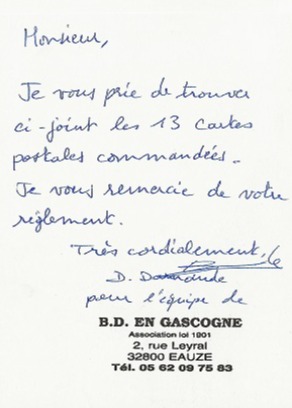 Monsieur,
Je vous prie de trouver
ci-joint les 13 cartes
postales commandées.
Je vous remercie de votre
règlement.
Très cordialement,
D.
pour l'équipe de
B.D. EN GASCOGNE
Association loi 1901
2, rue Leyral
32800 EAUZE
Tél. 05 62 09 75 83